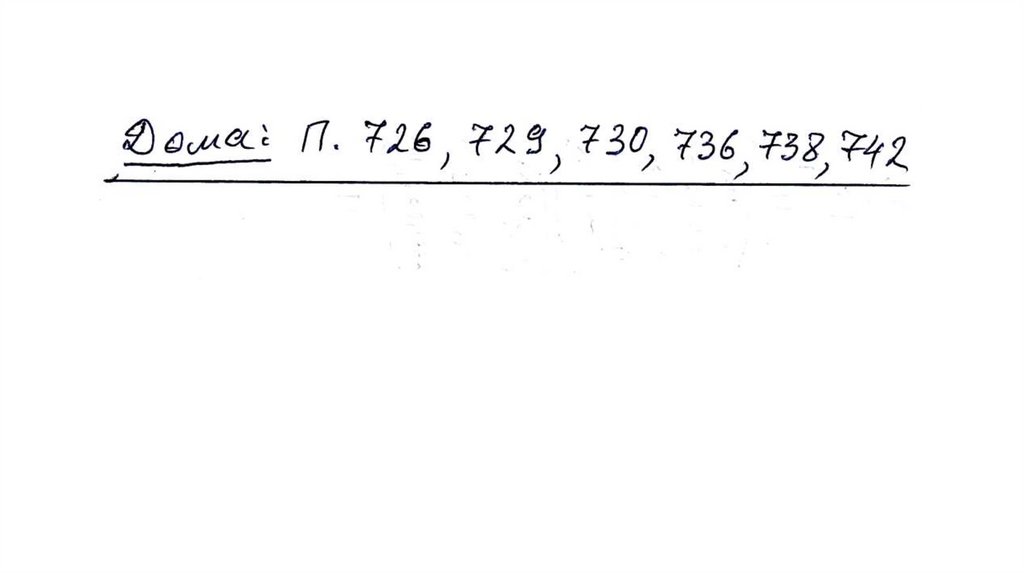 Дома: П. 726, 729, 730, 736, 738, 742